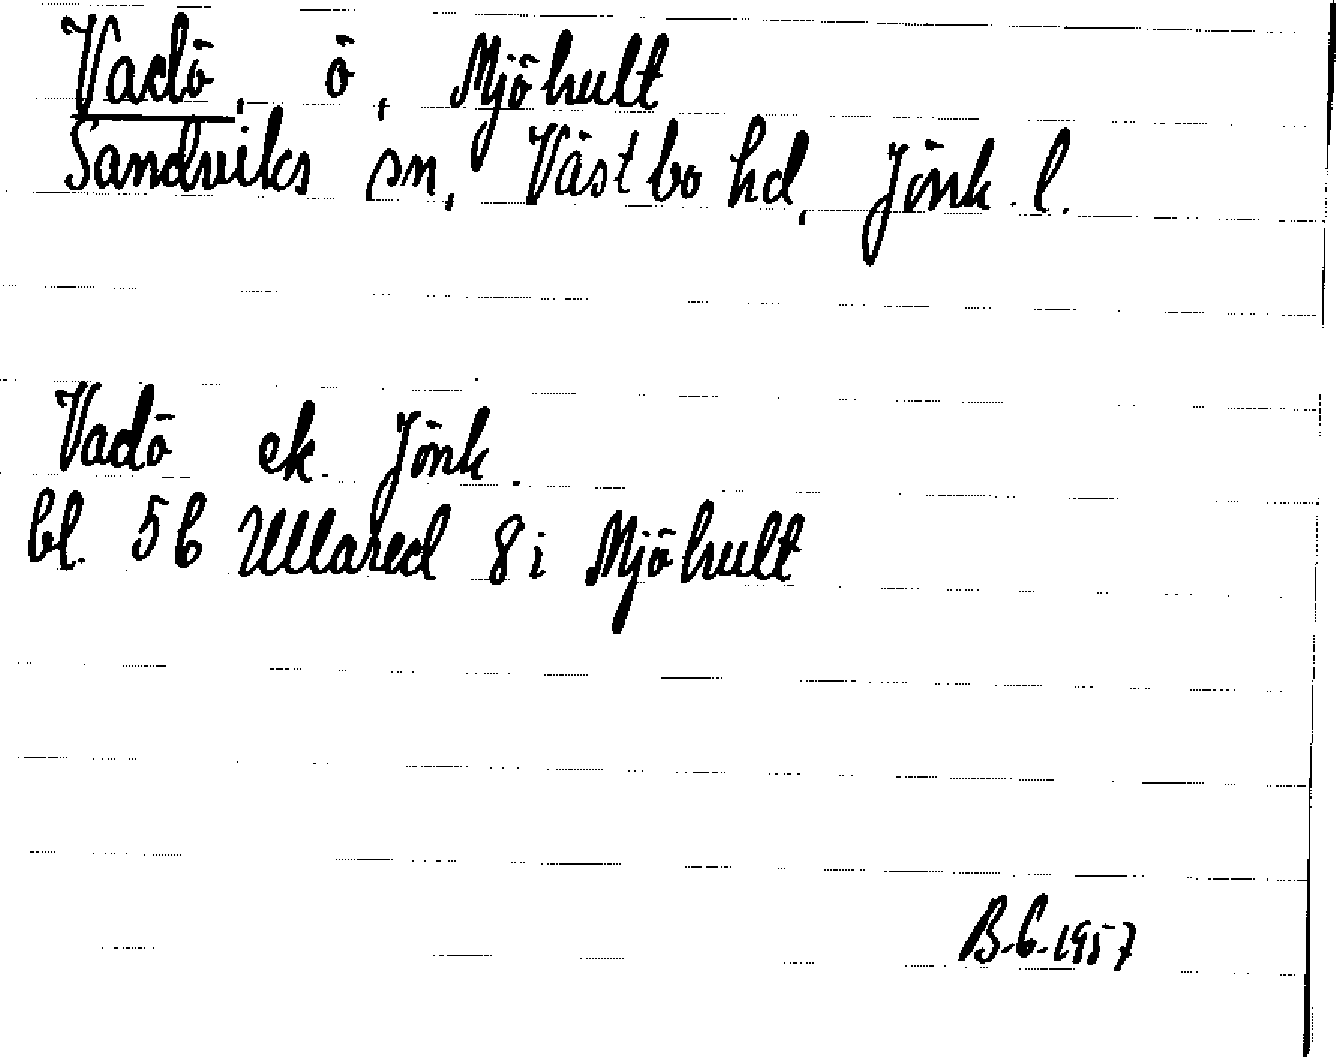 Vadö, ö, Mjöhult
Sandviks sn, Västbo hd, Jönk. l.
Vadö ek. Jönk.
bl. 5b Ullared 8i Mjöhult
B.G. 1957